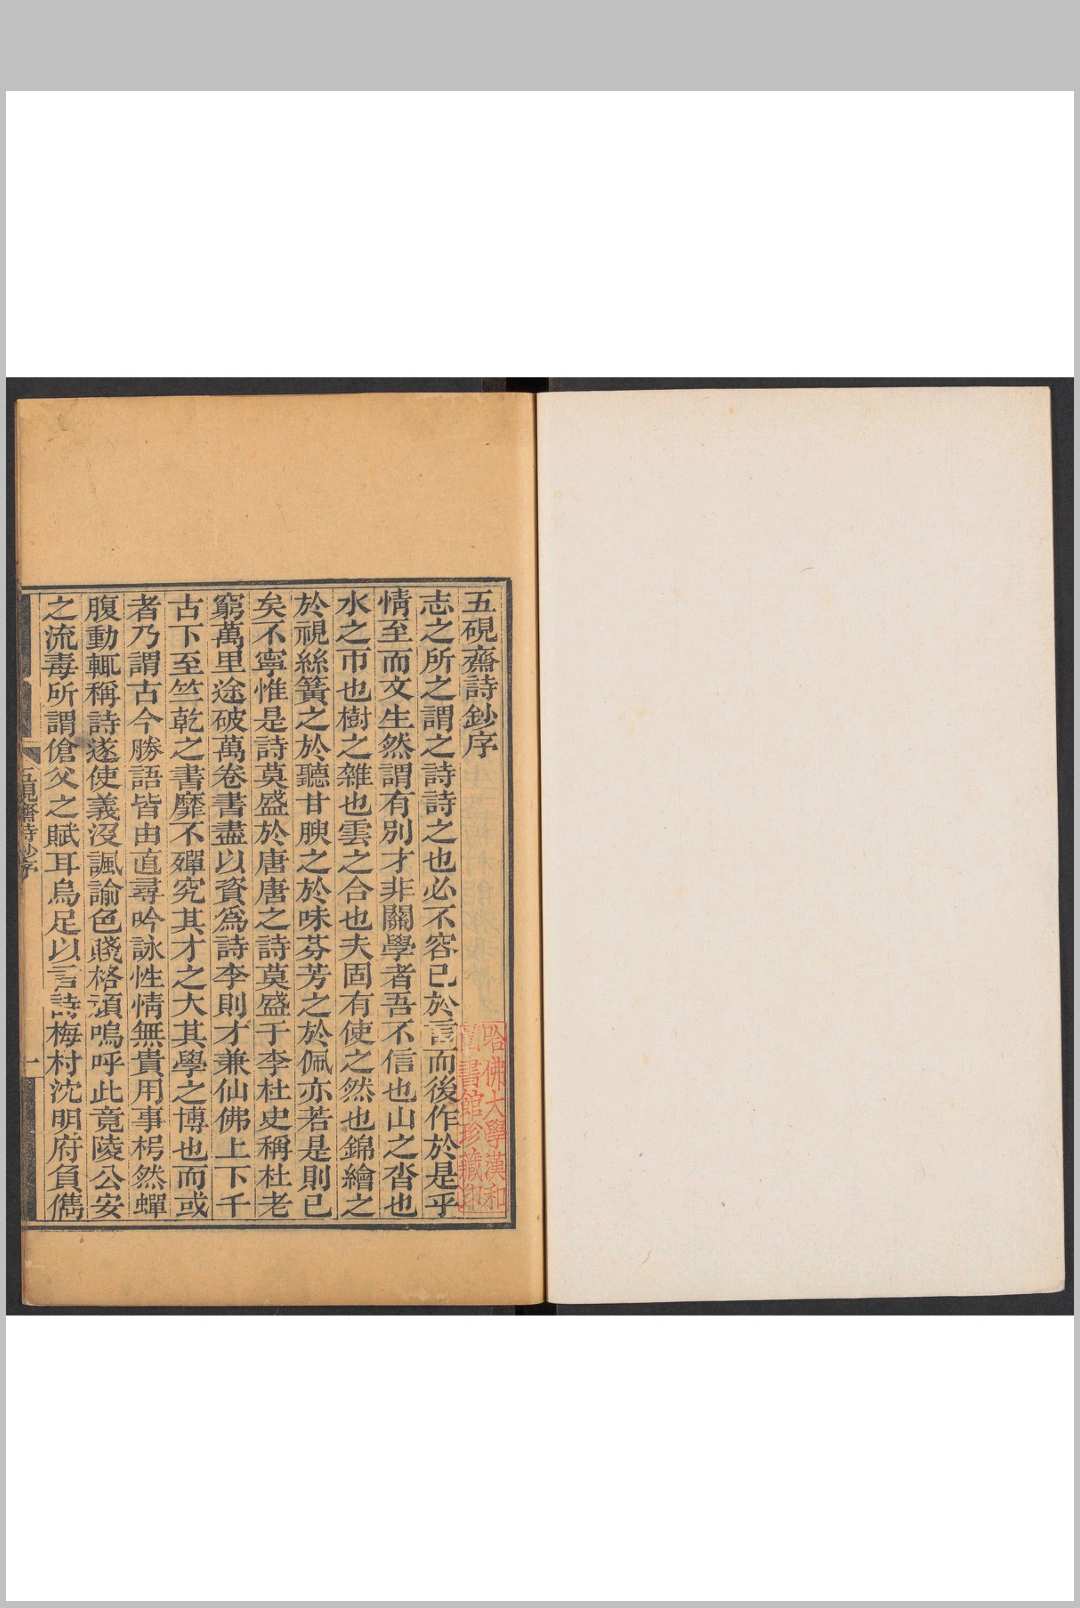 五硯齋詩鈔序
志之所之謂之詩詩之也必不容已於言而後作於是乎
情至而文生然謂有別才非關學者吾不信也山之沓也
水之帀也樹之雜也雲之合也夫固有使之然也錦繪之
於視絲簧之於聽甘腴之於味芬芳之於佩亦若是則已
矣不寧惟是詩莫盛於唐唐之詩莫盛于李杜史稱杜老
窮萬里途破萬卷書盡以資爲詩李則才兼仙佛上下千
古下至竺乾之書靡不殫究其才之大其學之博也而或
者乃謂古今勝語皆由直尋吟詠性情無貴用事枵然蟬
腹動輒稱詩遂使義沒諷諭色賤格頑嗚呼此竟陵公安
之流毒所謂傖父之賦耳烏足以言詩梅村沈明府負儁
五硯齋詩鈔序
一
哈佛大學漢和
圖書館珍藏印